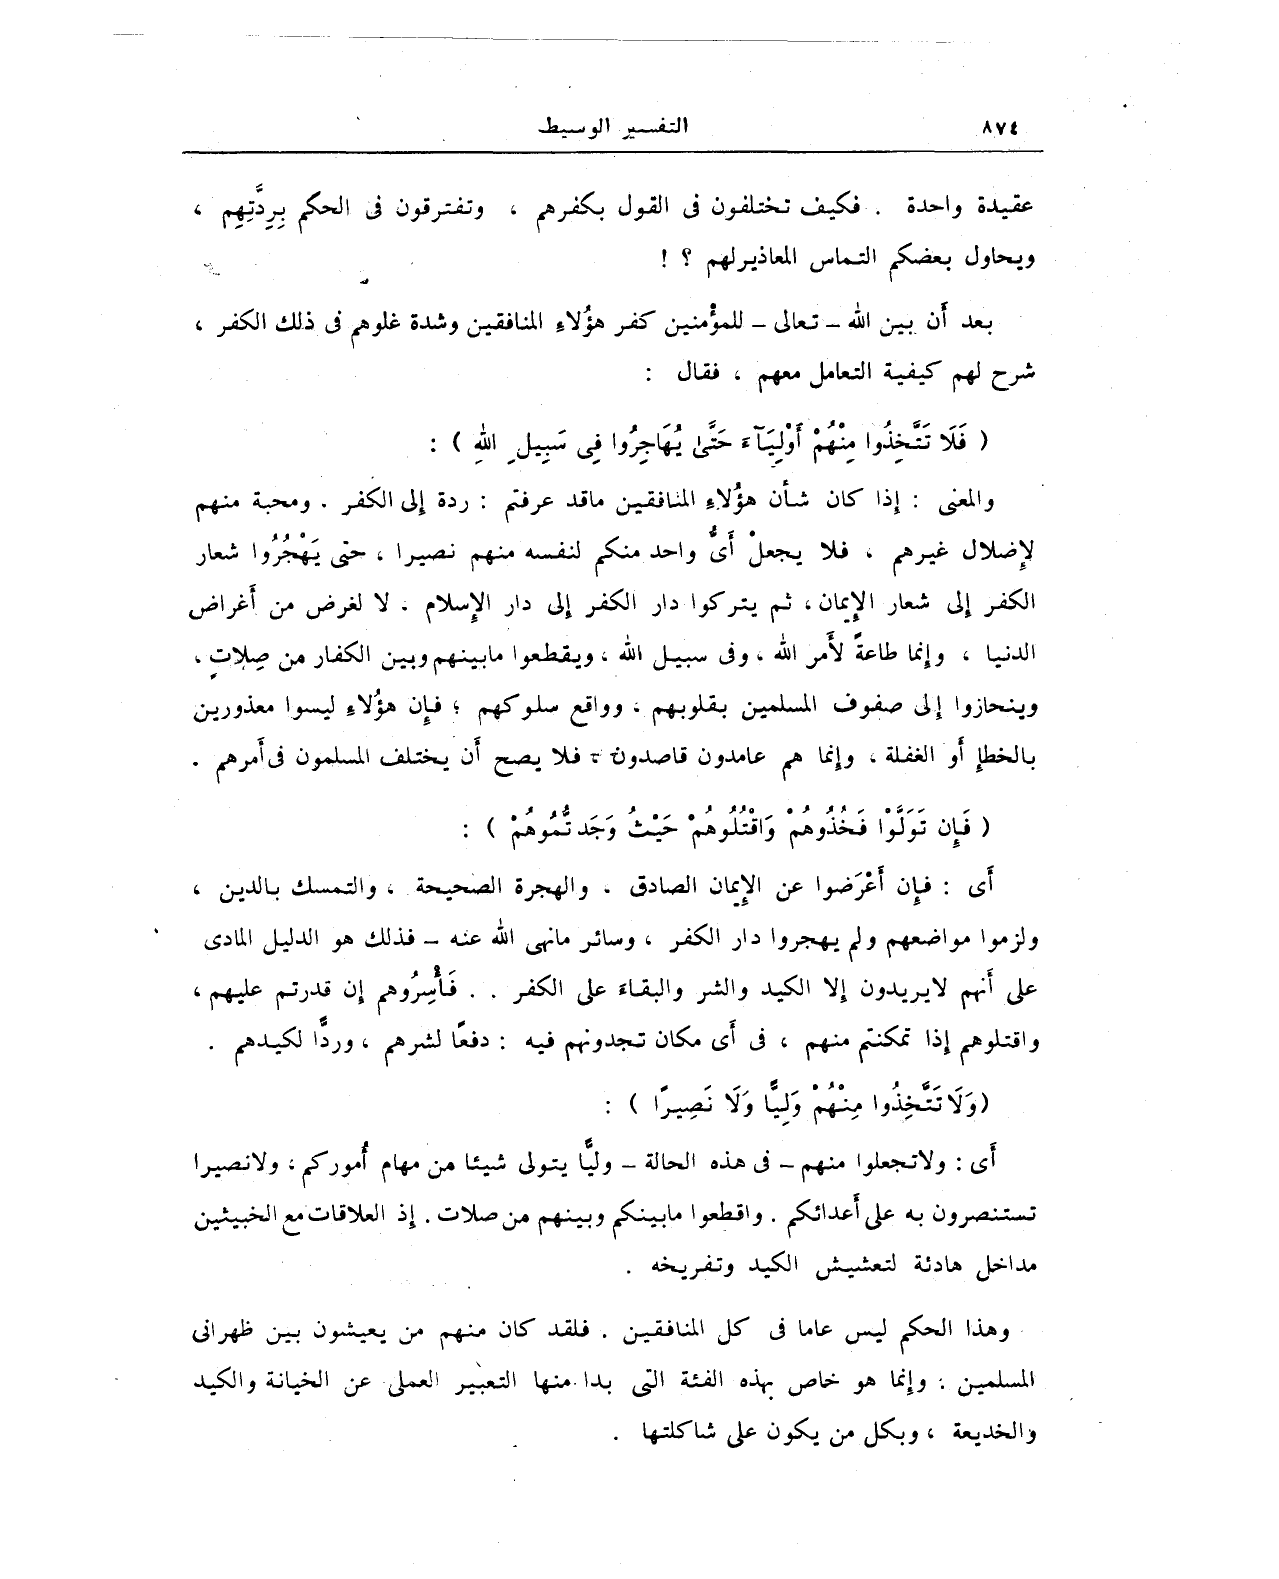 ٨٧٤
التفسير الوسيط
عقيدة واحدة . فكيف تختلفون فى القول بكفرهم ، وتفترقون فى الحكم بِرِدَّتِهِم ،
ويحاول بعضكم التماس المعاذيرلهم ؟ !
بعد أَن بين الله - تعالى - للمؤْمنين كفر هؤُلاءِ المنافقين وشدة غلوهم فى ذلك الكفر ،
شرح لهم كيفية التعامل معهم ، فقال :
( فَلَا تَتَّخِذُوا مِنْهُمْ أَوْلِيَآءَ حَتَّىٰ يُهَاجِرُوا فِى سَبِيلِ اللهِ ) :
والمعنى : إذا كان شأن هؤُلاءِ المنافقين ماقد عرفتم : ردة إلى الكفر . ومحبة منهم
لإِضلال غيرهم ، فلا يجعلْ أَىُّ واحد منكم لنفسه منهم نصيرا ، حتى يَهْجُرُوا شعار
الكفر إلى شعار الإِيمان ، ثم يتركوا دار الكفر إلى دار الإِسلام . لا لغرض من أَغراض
الدنيا ، وإنما طاعةً لأَمر الله ، وفى سبيل الله ، ويقطعوا مابينهم وبين الكفار من صِلاتٍ ،
وينحازوا إلى صفوف المسلمين بقلوبهم ، وواقع سلوكهم ؛ فإن هؤُلاءِ ليسوا معذورين
بالخطإِ أَو الغفلة ، وإنما هم عامدون قاصدون ؛ فلا يصح أَن يختلف المسلمون فى أَمرهم .
( فَإِن تَوَلَّوْا فَخُذُوهُمْ وَاقْتُلُوهُمْ حَيْثُ وَجَدتُّمُوهُمْ ) :
أَى : فإِن أَعْرَضوا عن الإِيمان الصادق ، والهجرة الصحيحة ، والتمسك بالدين ،
ولزموا مواضعهم ولم يهجروا دار الكفر ، وسائر مانهى الله عنه - فذلك هو الدليل المادى
على أَنهم لايريدون إلا الكيد والشر والبقاءَ على الكفر . . فَأْسِرُوهم إن قدرتم عليهم ،
واقتلوهم إذا تمكنتم منهم ، فى أَى مكان تجدونهم فيه : دفعًا لشرهم ، وردًّا لكيدهم .
(وَلَا تَتَّخِذُوا مِنْهُمْ وَلِيًّا وَلَا نَصِيرًا ) :
أَى : ولاتجعلوا منهم - فى هذه الحالة - وليًّا يتولى شيئا من مهام أُموركم ، ولانصيرا
تستنصرون به على أَعدائكم . واقطعوا مابينكم وبينهم من صلات . إذ العلاقات مع الخبيثين
مداخل هادئة لتعشيش الكيد وتفريخه .
وهذا الحكم ليس عاما فى كل المنافقين . فلقد كان منهم من يعيشون بين ظهرانى
المسلمين : وإنما هو خاص بهذه الفئة التى بدا منها التعبير العملى عن الخيانة والكيد
والخديعة ، وبكل من يكون على شاكلتها .